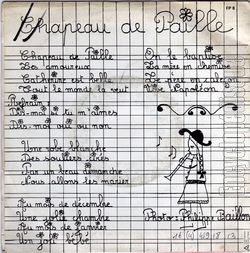 Chapeau de Paille
Chapeau de Paille
Des amoureux
Catherine est belle
Tout le monde la veut
Refrain:
Dis-moi si tu m'aimes
Dis-moi oui ou non
Une robe blanche
Des souliers cirés
Par un beau dimanche
Nous allons les marier
Au mois de décembre
Une jolie chambre
Au mois de janvier
Un joli bébé
On le baptise
La mère en chemise
Le père en caleçon
Vive Napoléon
Photo: Philippe Baillon